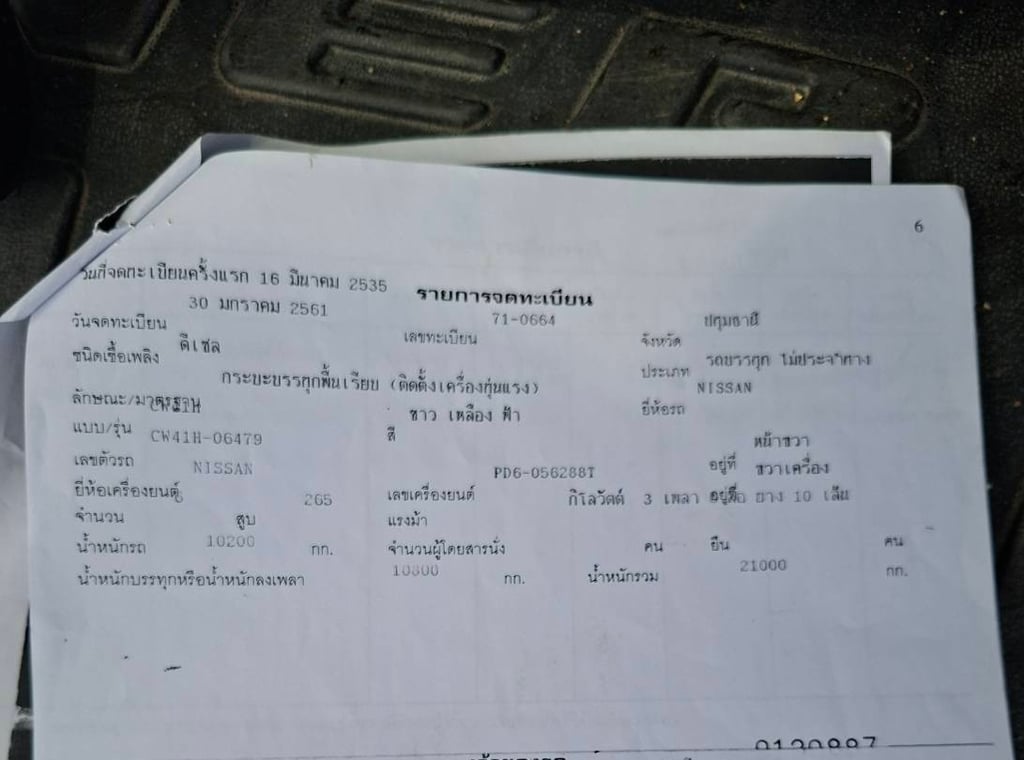 6
วันที่จดทะเบียนครั้งแรก 16 มีนาคม 2535
รายการจดทะเบียน
วันจดทะเบียน 30 มกราคม 2561 เลขทะเบียน 71-0664 จังหวัด ปทุมธานี
ชนิดเชื้อเพลิง ดีเซล ประเภท รถบรรทุก ไม่ประจำทาง
ลักษณะ/มาตรฐาน กระบะบรรทุกพื้นเรียบ (ติดตั้งเครื่องทุ่นแรง) ยี่ห้อรถ NISSAN
แบบ/รุ่น สี ขาว เหลือง ฟ้า
เลขตัวรถ CW41H-06479 อยู่ที่ หน้าขวา
ยี่ห้อเครื่องยนต์ NISSAN เลขเครื่องยนต์ PD6-056288T อยู่ที่ ขวาเครื่อง
จำนวน 6 สูบ 265 แรงม้า กิโลวัตต์ 3 เพลา 6 ล้อ ยาง 10 เส้น
น้ำหนักรถ 10200 กก. จำนวนผู้โดยสารนั่ง คน ยืน - คน
น้ำหนักบรรทุกหรือน้ำหนักลงเพลา 10800 กก. น้ำหนักรวม 21000 กก.